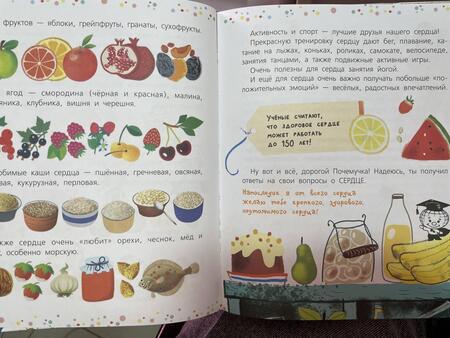 фруктов — яблоки, грейпфруты, гранаты, сухофрукты.
ягод — смородина (чёрная и красная), малина,
яника, клубника, вишня и черешня.
юбимые каши сердца — пшённая, гречневая, овсяная,
вая, кукурузная, перловая.
кже сердце очень «любит» орехи, чеснок, мёд и
, особенно морскую.
Активность и спорт — лучшие друзья нашего сердца!
Прекрасную тренировку сердцу дают бег, плавание, ката-
ние на лыжах, коньках, роликах, самокате, велосипеде,
занятия танцами, а также подвижные активные игры.
Очень полезны для сердца занятия йогой.
И ещё для сердца очень важно получать побольше «по-
ложительных эмоций» — весёлых, радостных впечатлений.
УЧЁНЫЕ СЧИТАЮТ,
ЧТО ЗДОРОВОЕ СЕРДЦЕ
МОЖЕТ РАБОТАТЬ
ДО 150 ЛЕТ!
Ну вот и всё, дорогой Почемучка! Надеюсь, ты получил
ответы на свои вопросы о СЕРДЦЕ.
Напоследок я от всего сердца
желаю тебе крепкого, здорового,
неутомимого сердца!